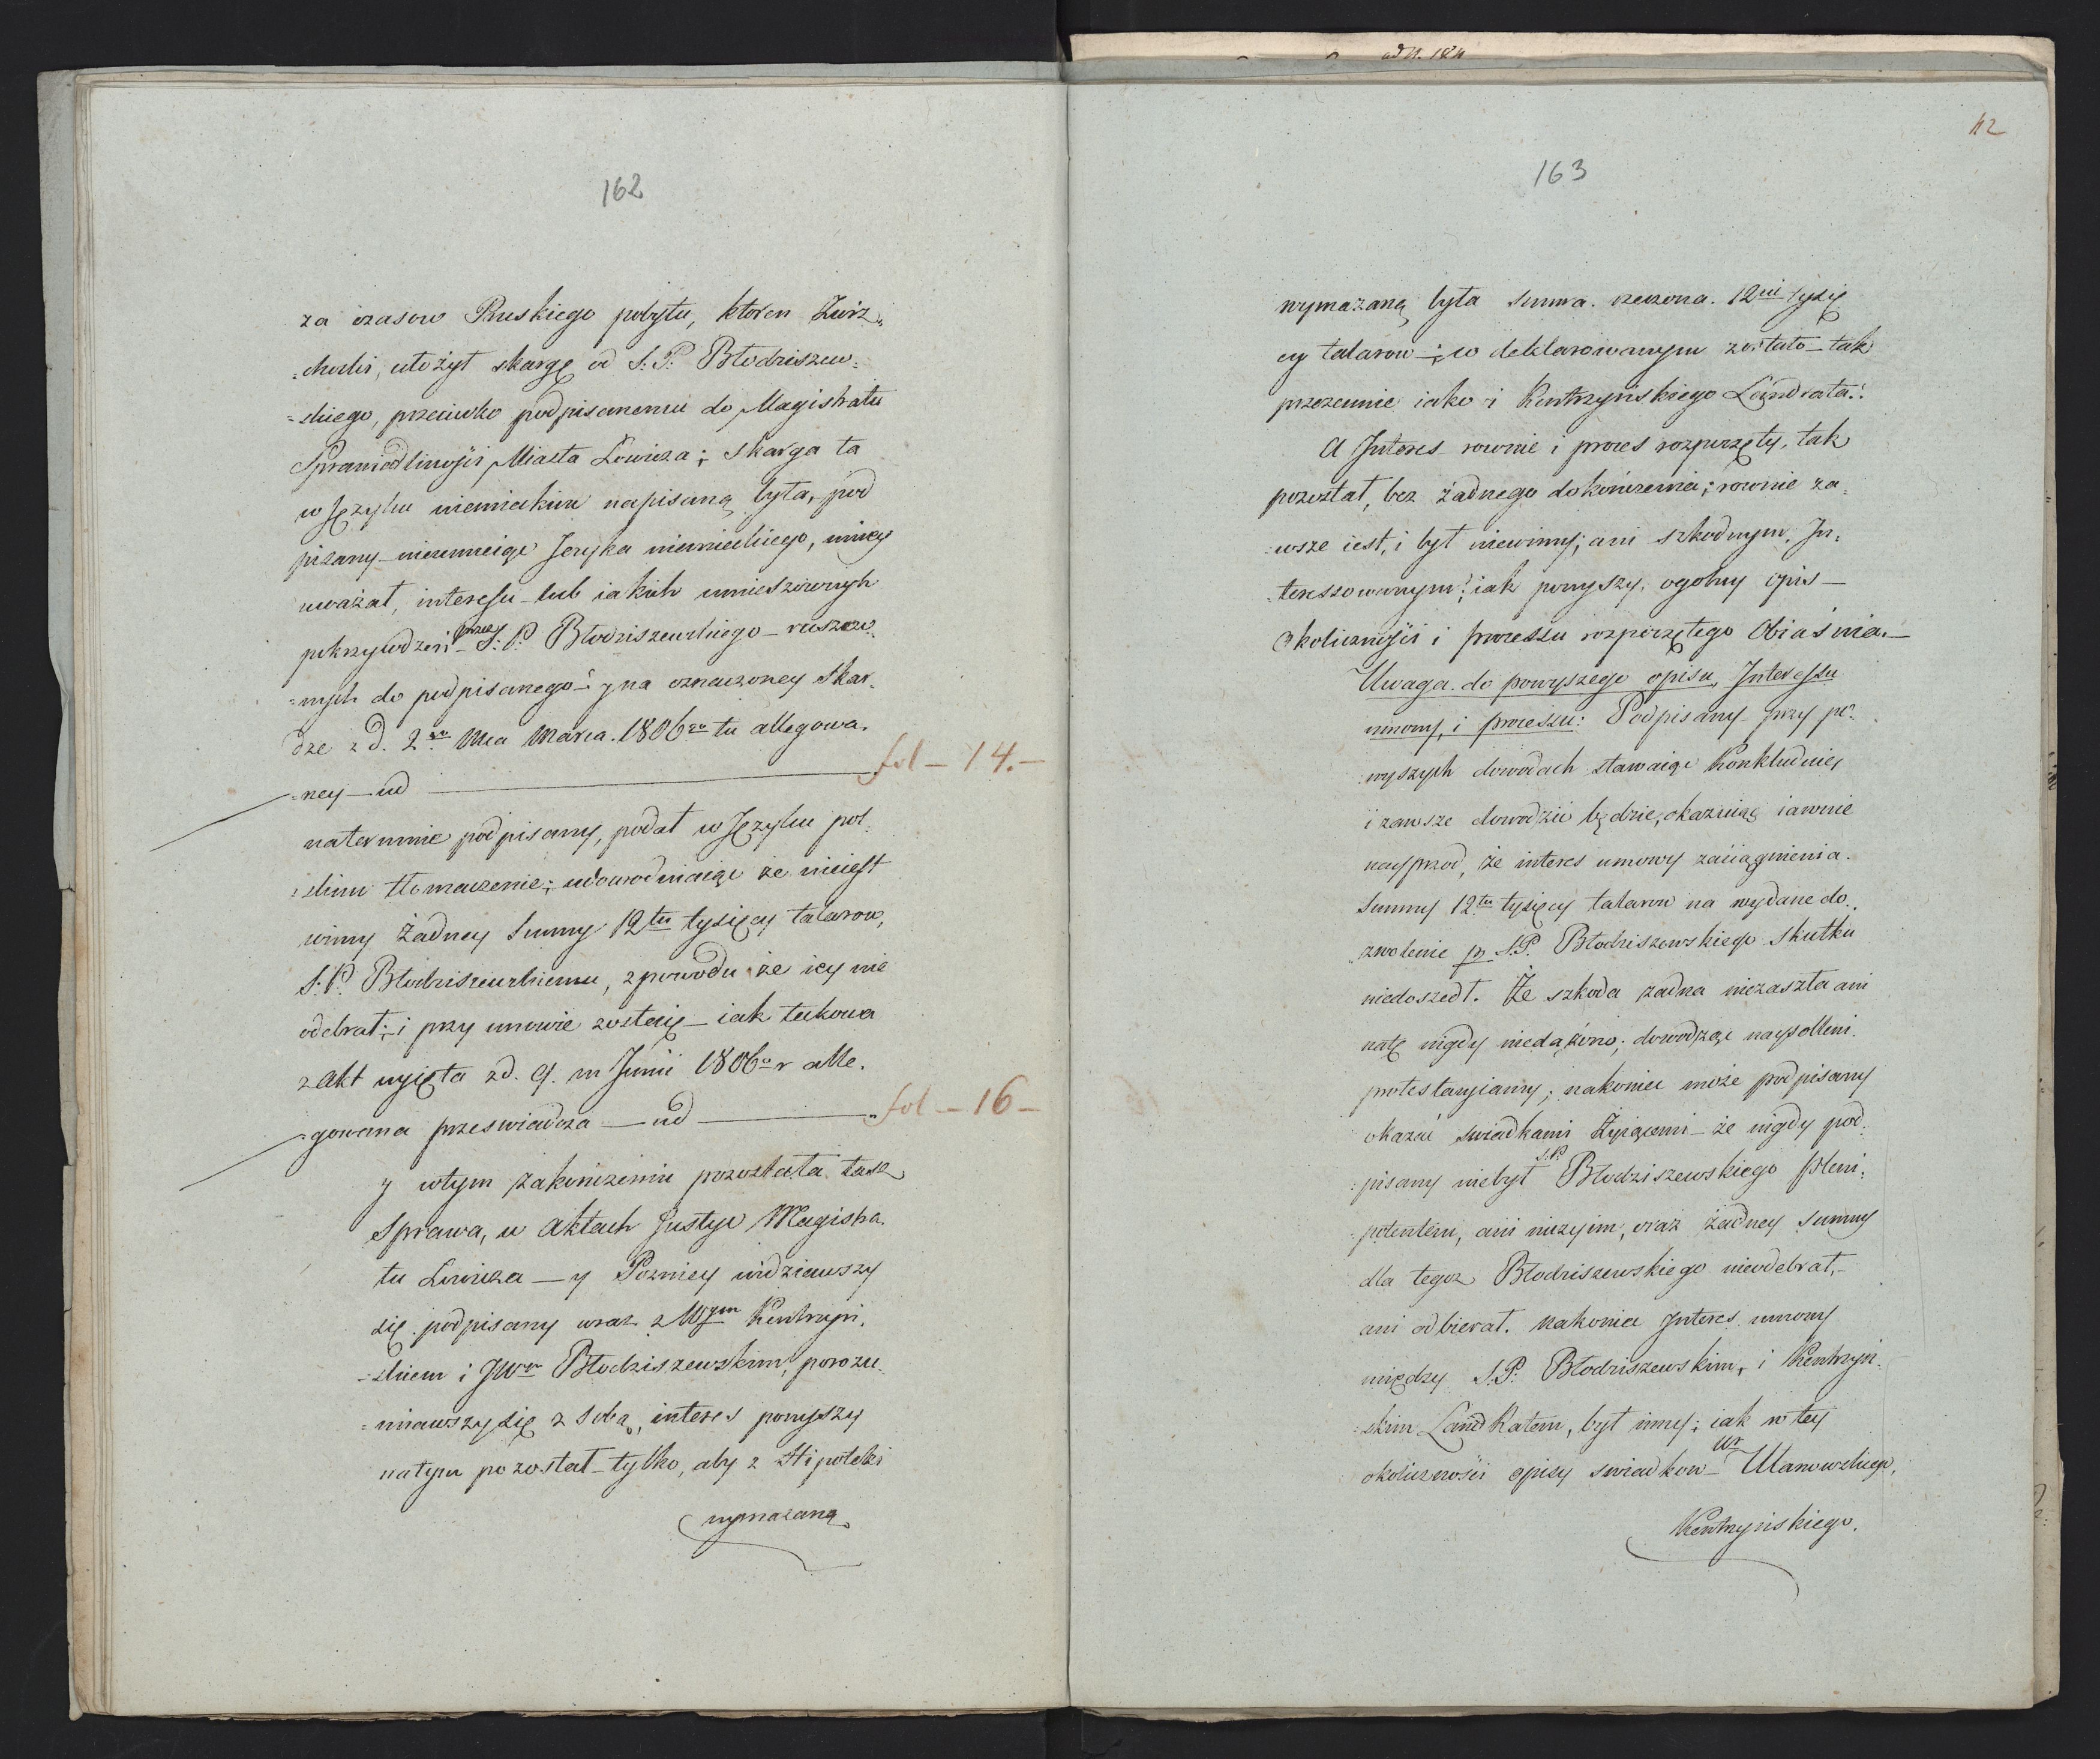 162
za czasow Pruskiego pobytu, ktoren Zwirz„
=chodzi, ułożył skargę od S: P: Błodziszew=
=skiego, przeciwko podpisanemu do Magistratu
Sprawiedliwości Miasta Łowicza; skarga ta
w Języku niemieckim napisaną była, pod
pisany nieumieiąc Języka niemieckiego, mniey
uważał, interesu lub iakich umieszczonych
pokrzywdzeń przez S: P: Błodziszewskiego
=nych do podpisanego i y na oznaczoney skar=
dze z d. 2go Mca Marca 1806go tu allegowa=
=ney — ud — fol — 14. —
natenmnie podpisany, podał w Języku pol=
=skim tłomaczenie; udowodniaiąc że nieiest
winny żadney Summy 12tu tysięcy talarow,
S: P: Błodziszewskiemu, z powodu że iey nie
odebrał; i przy umowie zostaię — iak takowa
z akt wyięta z d. 9. m Junii 1806o r alle=
=gowana przeswiadcza — ud — fol — 16 —
y wtym zakonczeniu pozostała taże
Sprawa, w Aktach Justyc Magistra=
tu Łowicza — y Pozniey widziawszy
się podpisany wraz z Wym Kentrzyń=
=skiem i JWm Błodziszewskim, porozu=
=miawszy się z sobą, interes powyższy
natym pozostał tylko, aby z Hipoteki
wymazaną
112
163
wymazaną była Summa rzeczona 12tu tysię
cy talarow; co deklarowanym zostało — tak
przezemnie iako i Kentrzyńskiego Landrata.
A Interes rownie i proces rozpoczęty, tak
pozostał, bez żadnego dokończenia; rownie za=
=wsze iest, i był niewinny, ani szkodnym, In=
=teressowanym; iak powyższy, ogolny opis —
Okoliczności i processu rozpoczętego Obiaśnia. —
Uwaga do powyższego opisu, Interessu
umowy, i processu: Podpisany przy po=
=wyższych dowodach stawaiąc Konkluduie
i zawsze dowodzić będzie, okazuiąc iawnie
nayprzod, że interes umowy zaciągnienia
Summy 12tu tysięcy talarow na wydane do=
zwolenie p. S.P. Błodziszewskiego skutku
niedoszedł. Że szkoda żadna niezaszła ani
natę nigdy niedążono; dowodząc naysolleni.
protestacyiamy; nakoniec może podpisany
okazać swiadkami Żyiącemi — że nigdy pod=
=pisany niebył S.P. Błodziszewskiego pleni=
=potentem, ani niczyim, oraz żadney summy
dla tegoż Błodziszewskiego nieodebrał, —
ani odbierał. Nakoniec Interes umowy
między S.P. Błodziszewskim, i Kentrzyń=
=skim LandRatem, był inny; iak w tey
okoliczności opisy swiadkow — Wo Ulanowskiego,
Kentrzyńskiego.